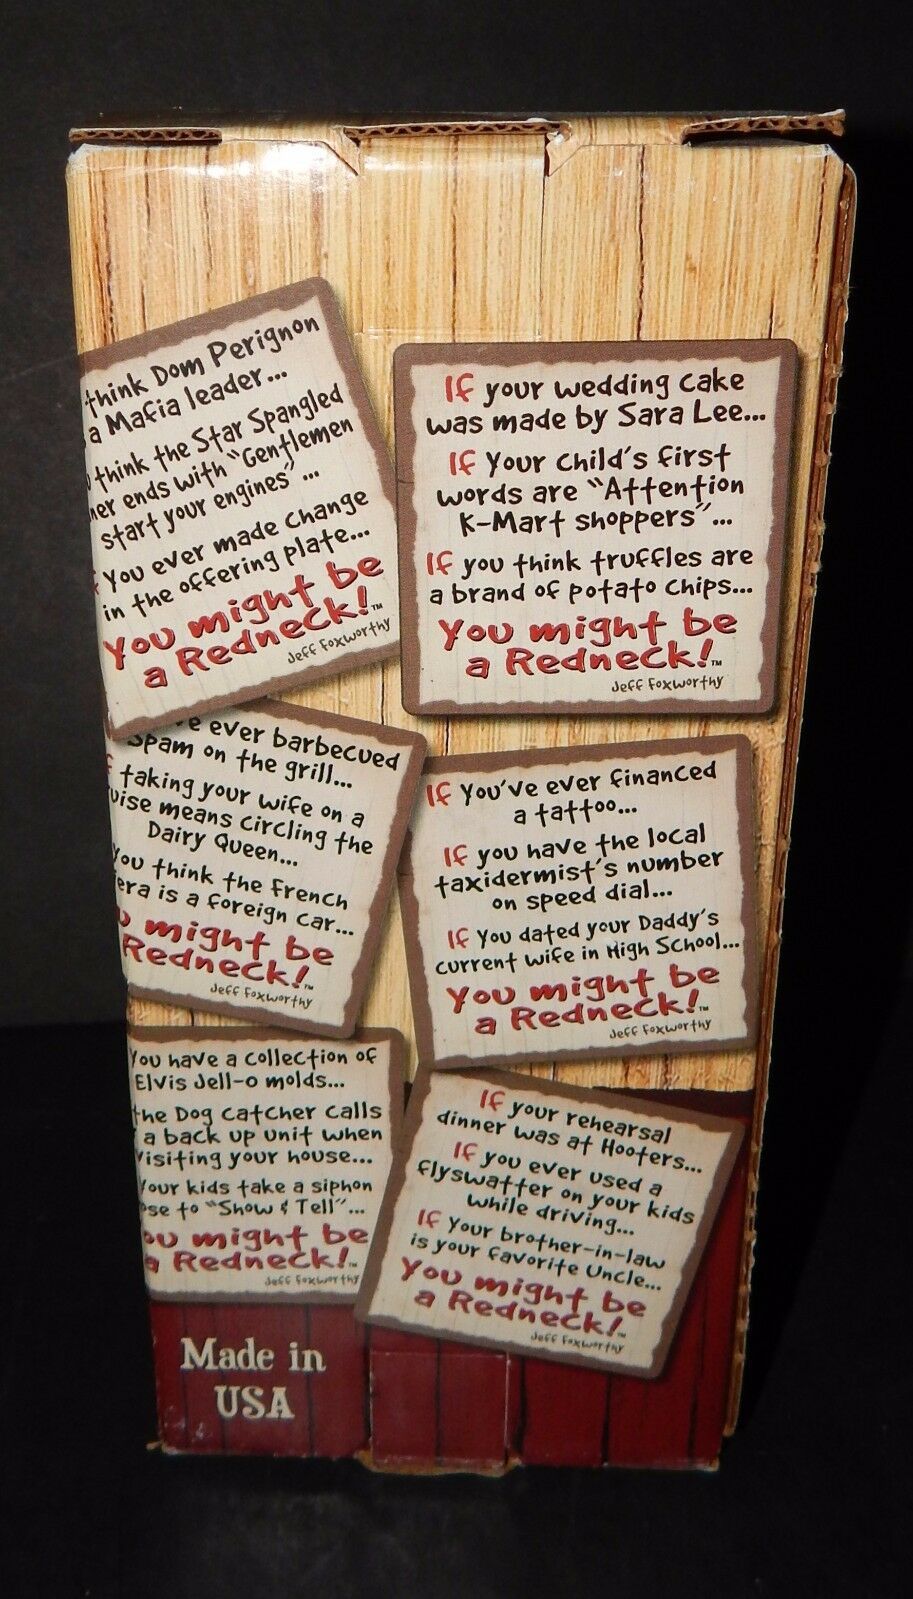 think Dom Perignon
a Mafia leader...
think the Star Spangled
ner ends with "Gentlemen
start your engines"...
f You ever made change
in the offering plate...
You might be
a Redneck!™
Jeff Foxworthy
If your wedding cake
was made by Sara Lee...
If Your Child's first
words are "Attention
K-Mart shoppers"...
If you think truffles are
a brand of potato chips...
You might be
a Redneck!™
Jeff Foxworthy
've ever barbecued
Spam on the grill...
f taking your wife on a
uise means circling the
Dairy Queen...
you think the French
iera is a foreign car...
u might be
Redneck!™
Jeff Foxworthy
If You've ever financed
a tattoo...
If you have the local
taxidermist's number
on speed dial...
If You dated your Daddy's
current wife in High School...
You might be
a Redneck!™
Jeff Foxworthy
You have a collection of
Elvis Jell-o molds...
the Dog catcher calls
a back up unit when
visiting your house...
Your kids take a siphon
ose to "Show & Tell"...
ou might be
a Redneck!™
Jeff Foxworthy
If your rehearsal
dinner was at Hooters...
If you ever used a
flyswatter on your kids
while driving...
If Your brother-in-law
is your favorite Uncle...
You might be
a Redneck!™
Jeff Foxworthy
Made in
USA